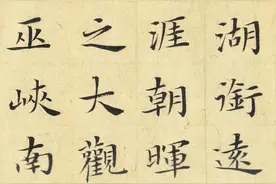 湖銜遠
涯朝暉
之大觀
巫峽南